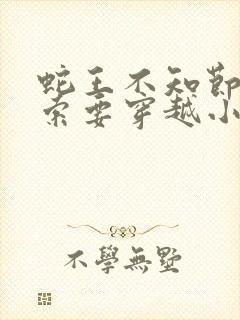 蛇王不知节
索要穿越小
不學無墅